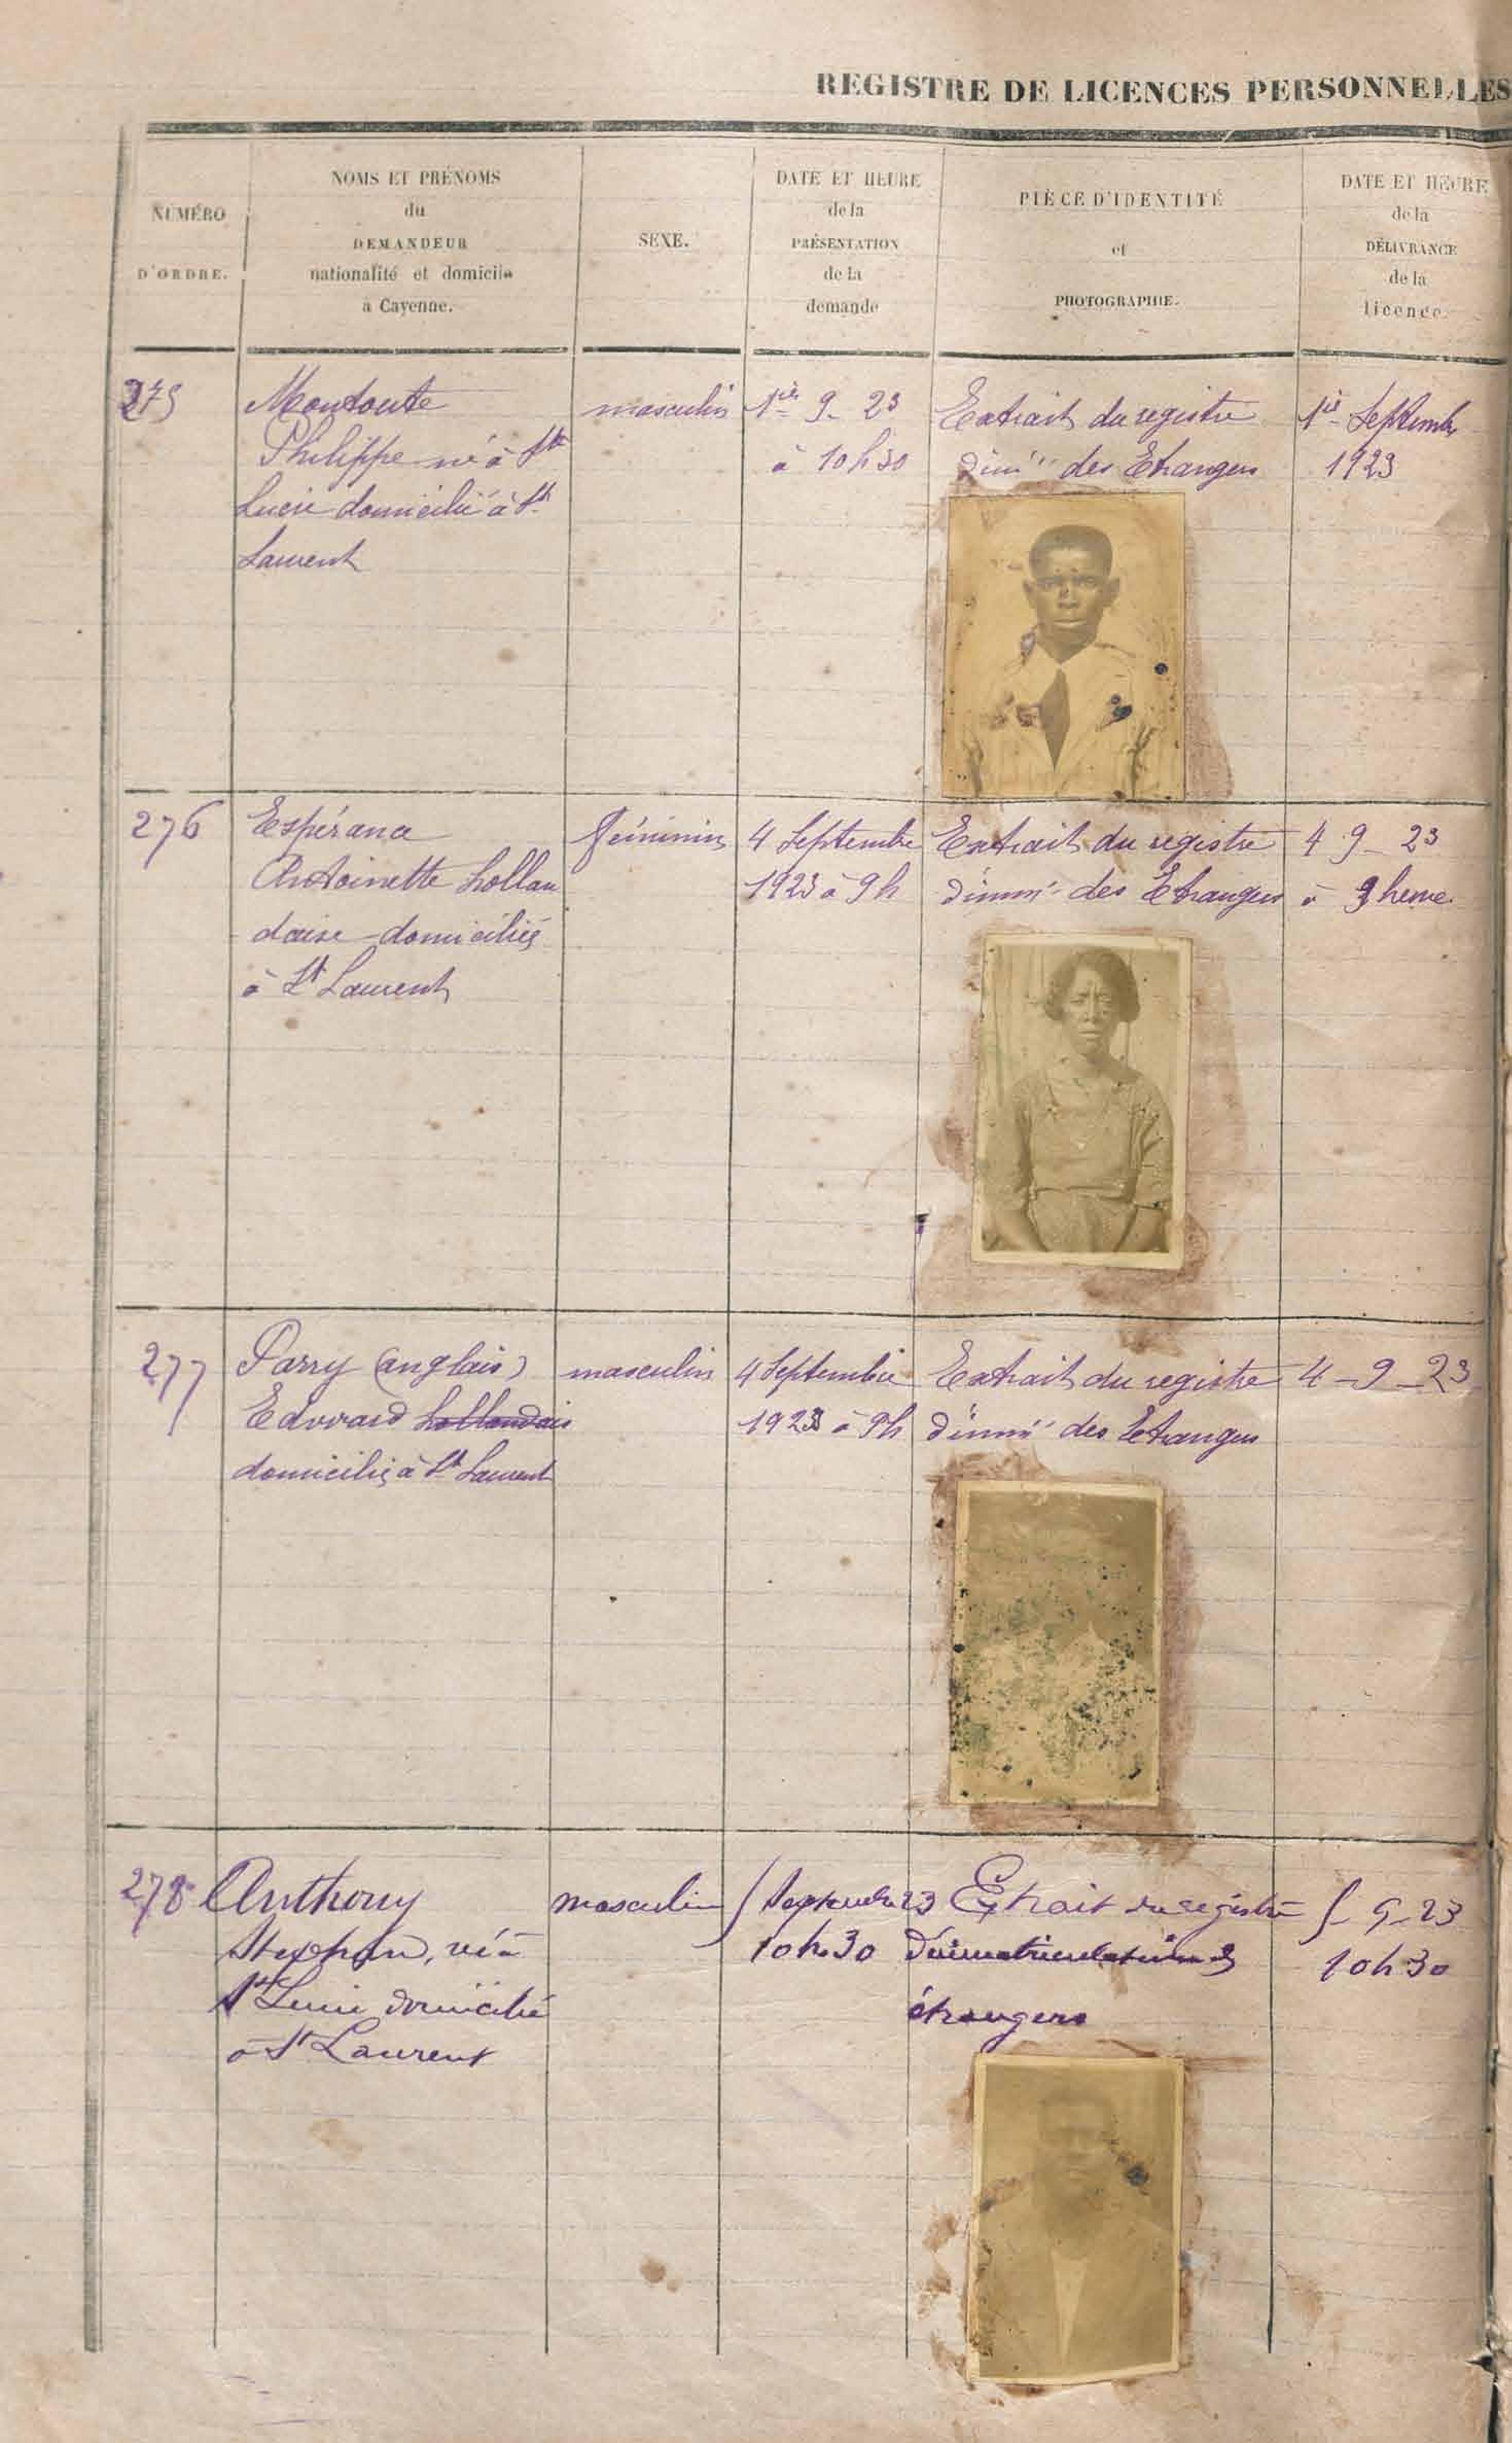 REGISTRE DE LICENCES PERSONNELLES
NUMÉRO
D'ORDRE.
NOMS ET PRÉNOMS
du
DEMANDEUR
nationalité et domicile
à Cayenne.
SEXE.
DATE ET HEURE
de la
PRÉSENTATION
de la
demande
PIÈCE D'IDENTITÉ
et
PHOTOGRAPHIE.
DATE ET HEURE
de la
DÉLIVRANCE
de la
licence.
275
Montoute
Philippe né à Ste
Lucie domicilié à St
Laurent
masculin
1er 9- 23
à 10h30
Extrait du registre
d'imm des Etrangers
1er Septembre
1923
276
Espérana
Antoinette hollan
daise domiciliée
à St Laurent
féminin
4 Septembre
1923 à 9h
Extrait du registre
d'imm des Etrangers
4 9- 23
à 9 heure
277
Parry (anglais)
Edouard hollandais
domicilié à St Laurent
masculin
4 Septembre
1923 à 9h
Extrait du registre
d'imm des Etrangers
4-9-23
278
Anthony
Stephen, né à
Ste Lucie domicilié
à St Laurent
masculin
5 Septembre 23
10h30
Extrait du registre
d'immatriculation
étrangers
5-9-23
10h30